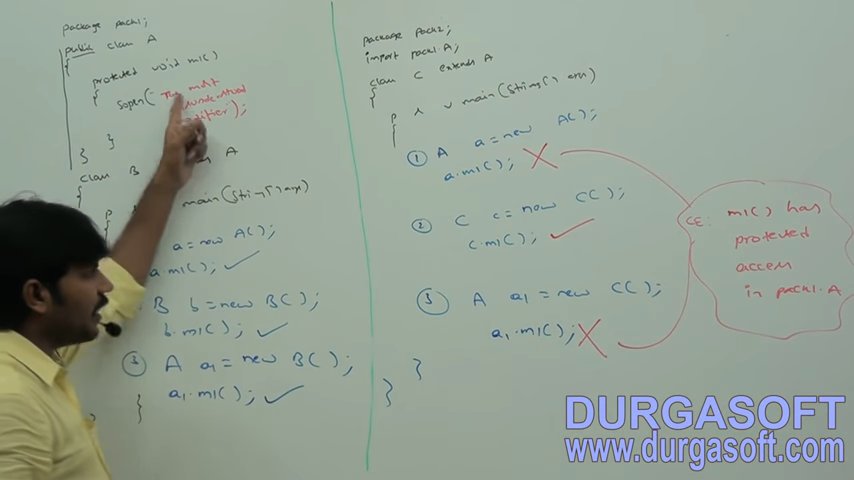 package pack1;
public class A
{
protected void m1()
{
Sopln("The most
modifier");
}
}
class B A
{
p main(String[] args)
a = new A();
a.m1();
B b = new B();
b.m1();
③ A a1 = new B();
a1.m1();
}
package pack2;
import pack1.A;
class C extends A
{
p s v main(String[] args)
{
① A a = new A();
a.m1();
② C c = new C();
c.m1();
③ A a1 = new C();
a1.m1();
}
}
CE: m1() has
protected
access
in pack1.A
DURGASOFT
www.durgasoft.com